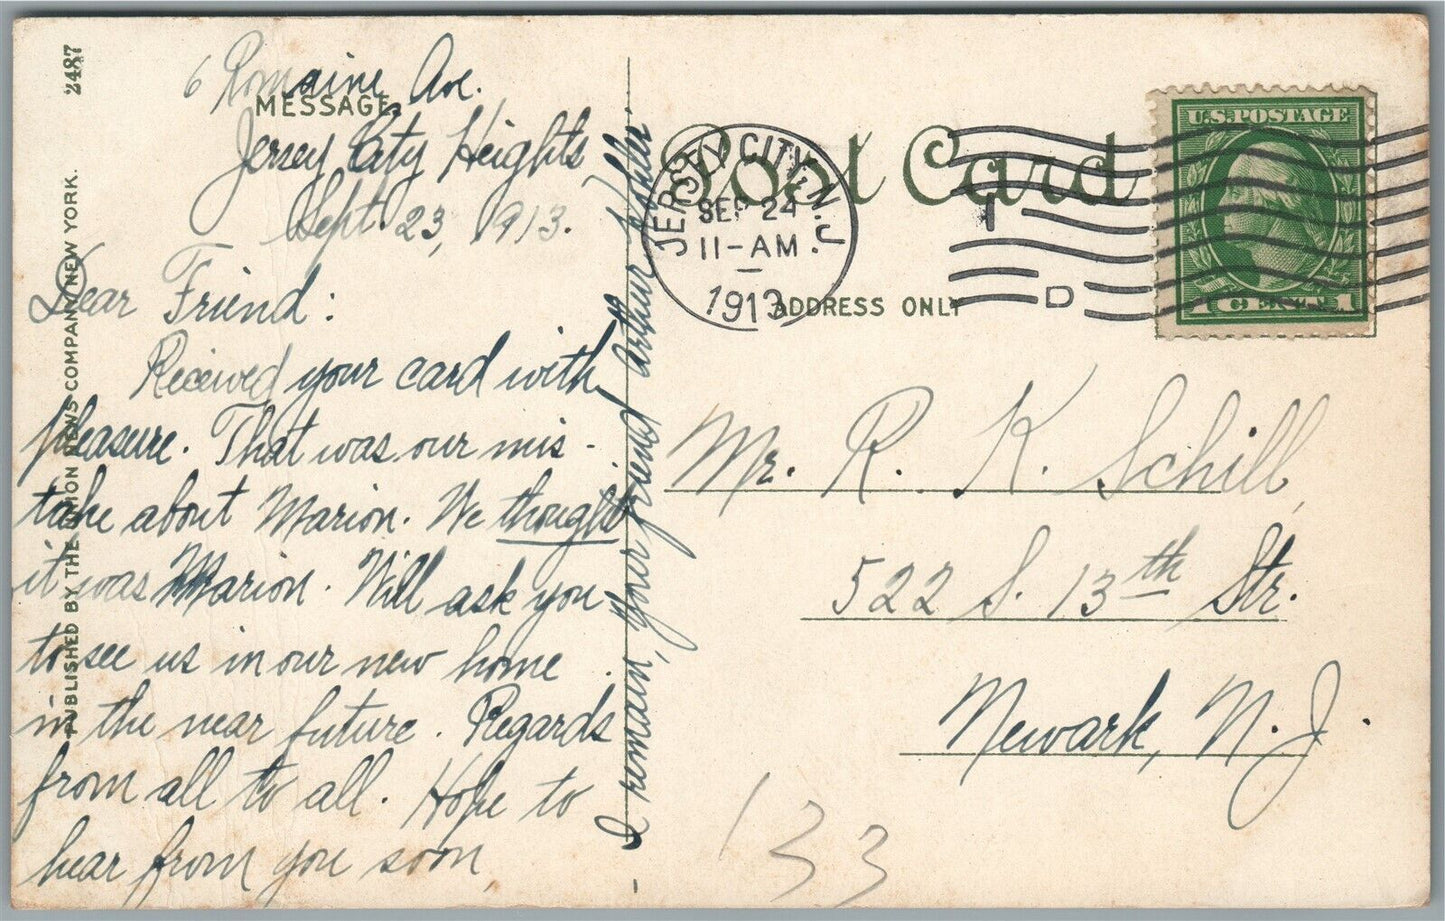 2487
PUBLISHED BY THE UNION NEWS COMPANY, NEW YORK.
MESSAGE
6 Romaine Ave.
Jersey City Heights
Sept. 23, 1913.
Dear Friend:
Received your card with
pleasure. That was our mis-
take about Marion. We thought
it was Marion. Will ask you
to see us in our new home
in the near future. Regards
from all to all. Hope to
hear from you soon,
I remain, your friend Arthur
Post Card
JERSEY CITY, N.J.
SEP 24
11-AM
1913
D
U.S. POSTAGE
1 CENT 1
ADDRESS ONLY
Mr. R. K. Schill,
522 S. 13th Str.
Newark, N. J.
133